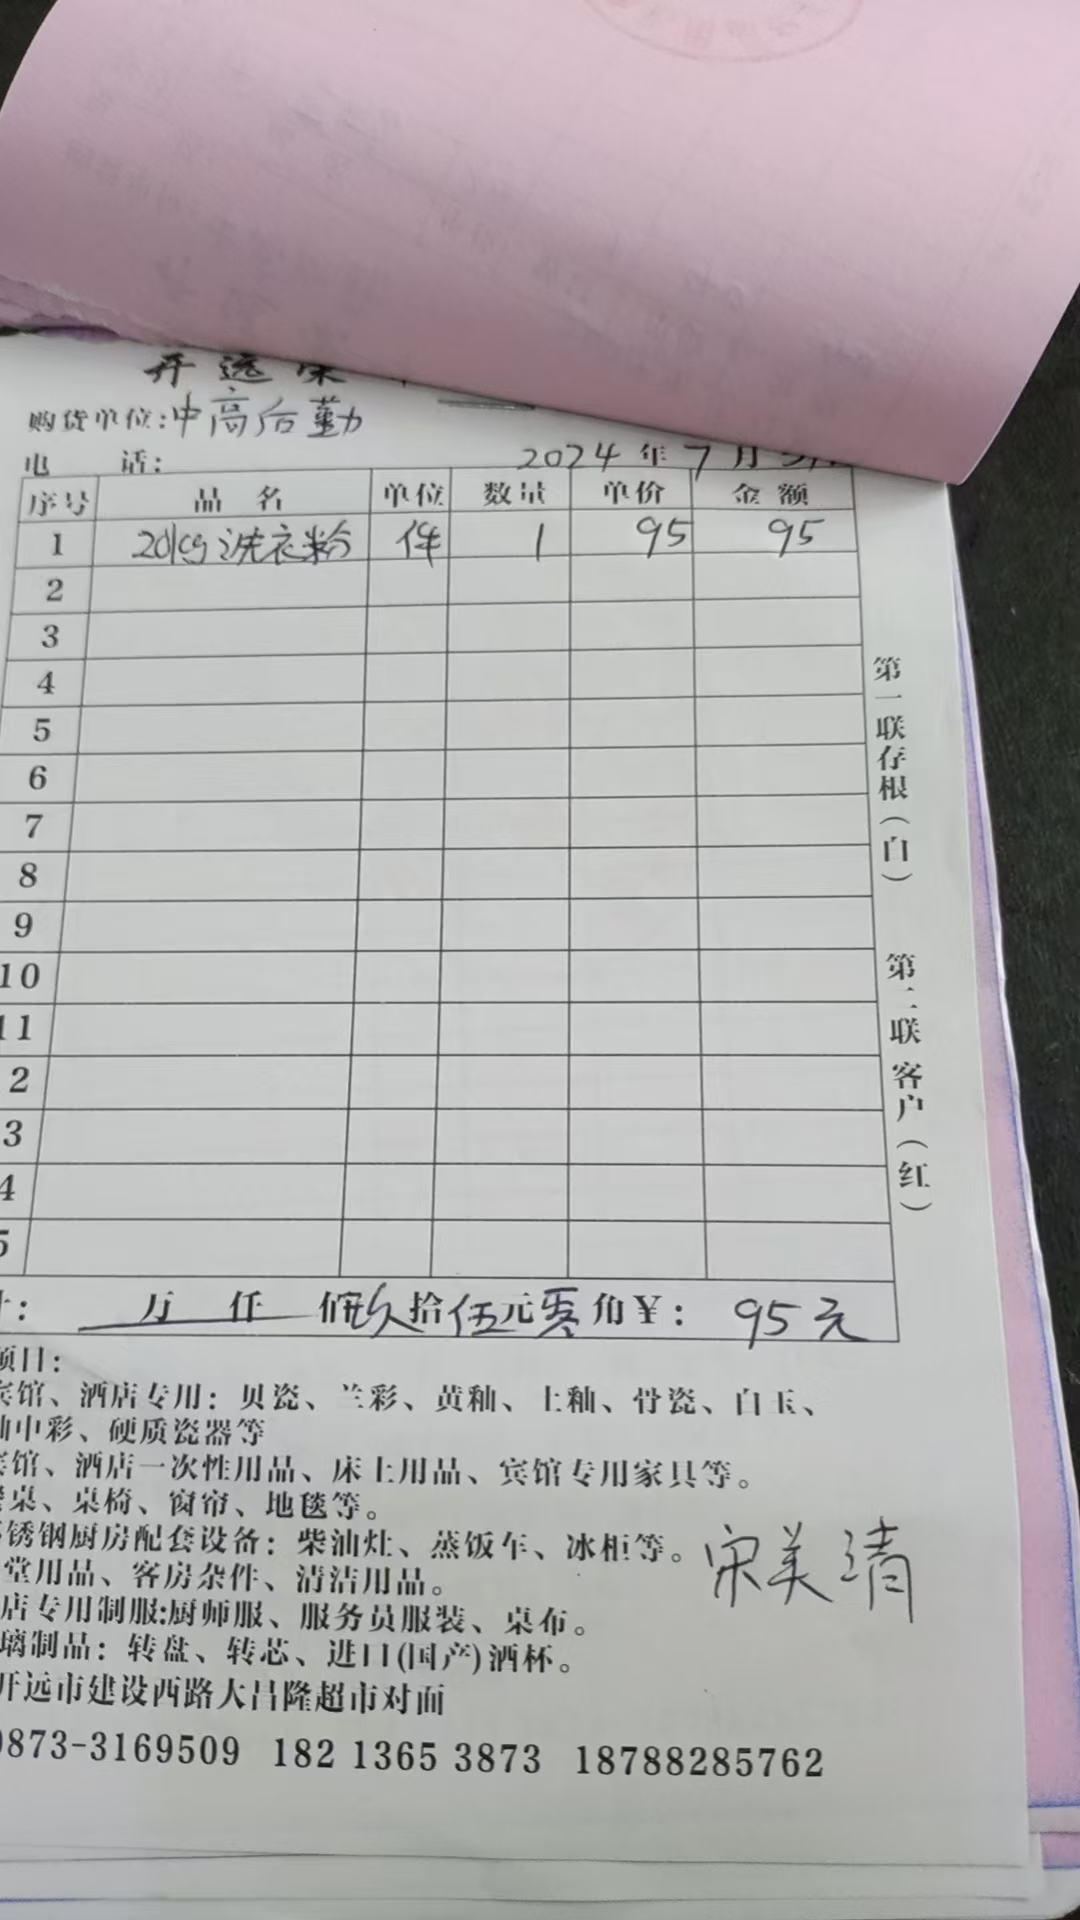 开远
购货单位:中高后勤
电 话:
2024 年 7 月
序号 品 名 单位 数量 单价 金 额
1 20kg洗衣粉 件 1 95 95
2
3
4
5
6
7
8
9
10
11
2
3
4
5
万 仟 佰玖拾伍元零角¥: 95元
项目:
宾馆、酒店专用: 贝瓷、兰彩、黄釉、土釉、骨瓷、白玉、
釉中彩、硬质瓷器等
宾馆、酒店一次性用品、床上用品、宾馆专用家具等。
桌、桌椅、窗帘、地毯等。
锈钢厨房配套设备: 柴油灶、蒸饭车、冰柜等。
堂用品、客房杂件、清洁用品。
店专用制服:厨师服、服务员服装、桌布。
璃制品: 转盘、转芯、进口(国产)酒杯。
宋美清
开远市建设西路大昌隆超市对面
0873-3169509 182 1365 3873 18788285762
第一联存根(白) 第二联客户(红)